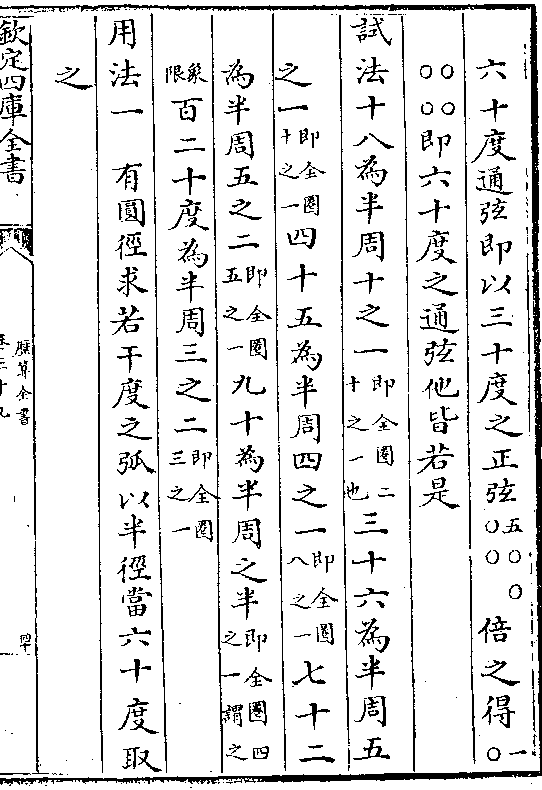 六十度通弦即以三十度之正弦五〇〇〇〇倍之得一〇
〇〇〇〇即六十度之通弦他皆若是
試法十八為半周十之一即全圜二十之一也三十六為半周五
之一即全圜十之一四十五為半周四之一即全圜八之一七十二
為半周五之二即全圜五之一九十為半周之半即全圜四之一謂之
象限百二十度為半周三之二即全圜三之一
用法一　有圓徑求若干度之弧以半徑當六十度取
之
欽定四庫全書
歷算全書